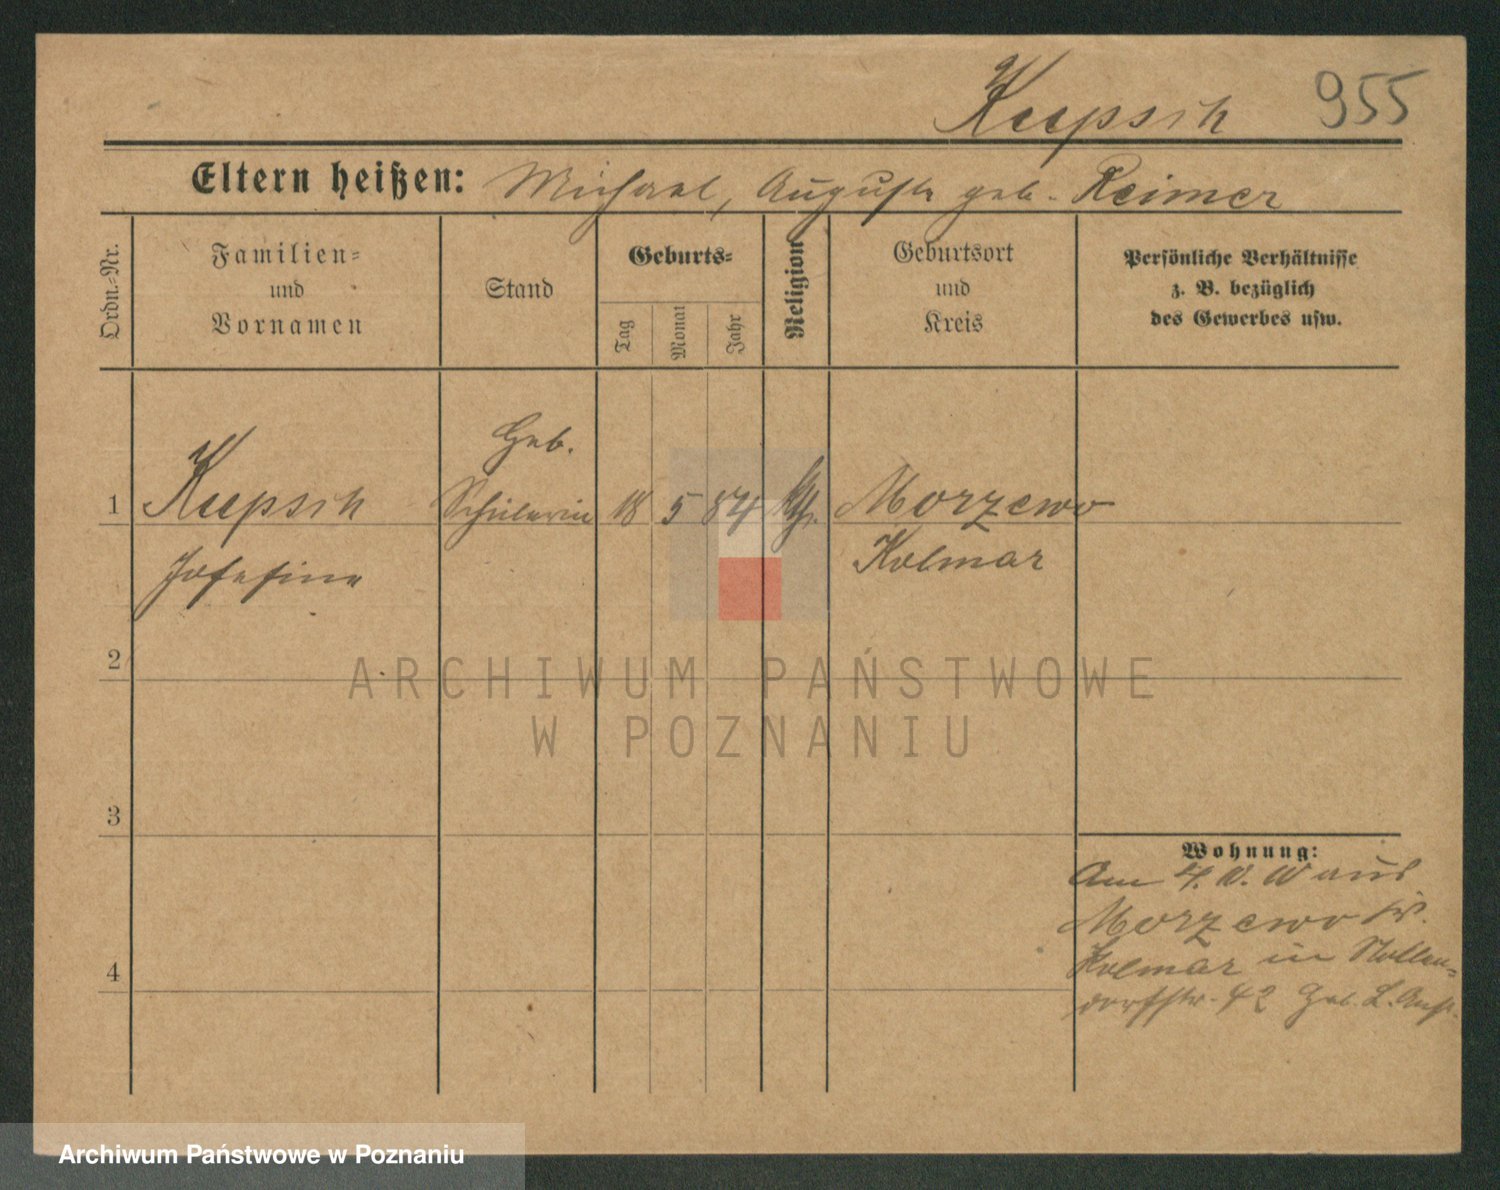 Kcepsch 955
Eltern heißen: Michael, Auguste geb. Reimer
Ordn.-Nr.
Familien-
und
Vornamen
Stand
Geburts-
Tag
Monat
Jahr
Religion
Geburtsort
und
Kreis
Persönliche Verhältnisse
z. B. bezüglich
des Gewerbes usw.
Heb.
1 Kcepsch Schülerin 18 5 84 kth. Morzewo
Josefine Kolmar
2
3
4
Wohnung:
Am 4. 10. 10 aus
Morzewo Kr.
Kolmar in Nollen-
dorfstr. 42 Heb. L. Anst.
ARCHIWUM PAŃSTWOWE
W POZNANIU
Archiwum Państwowe w Poznaniu